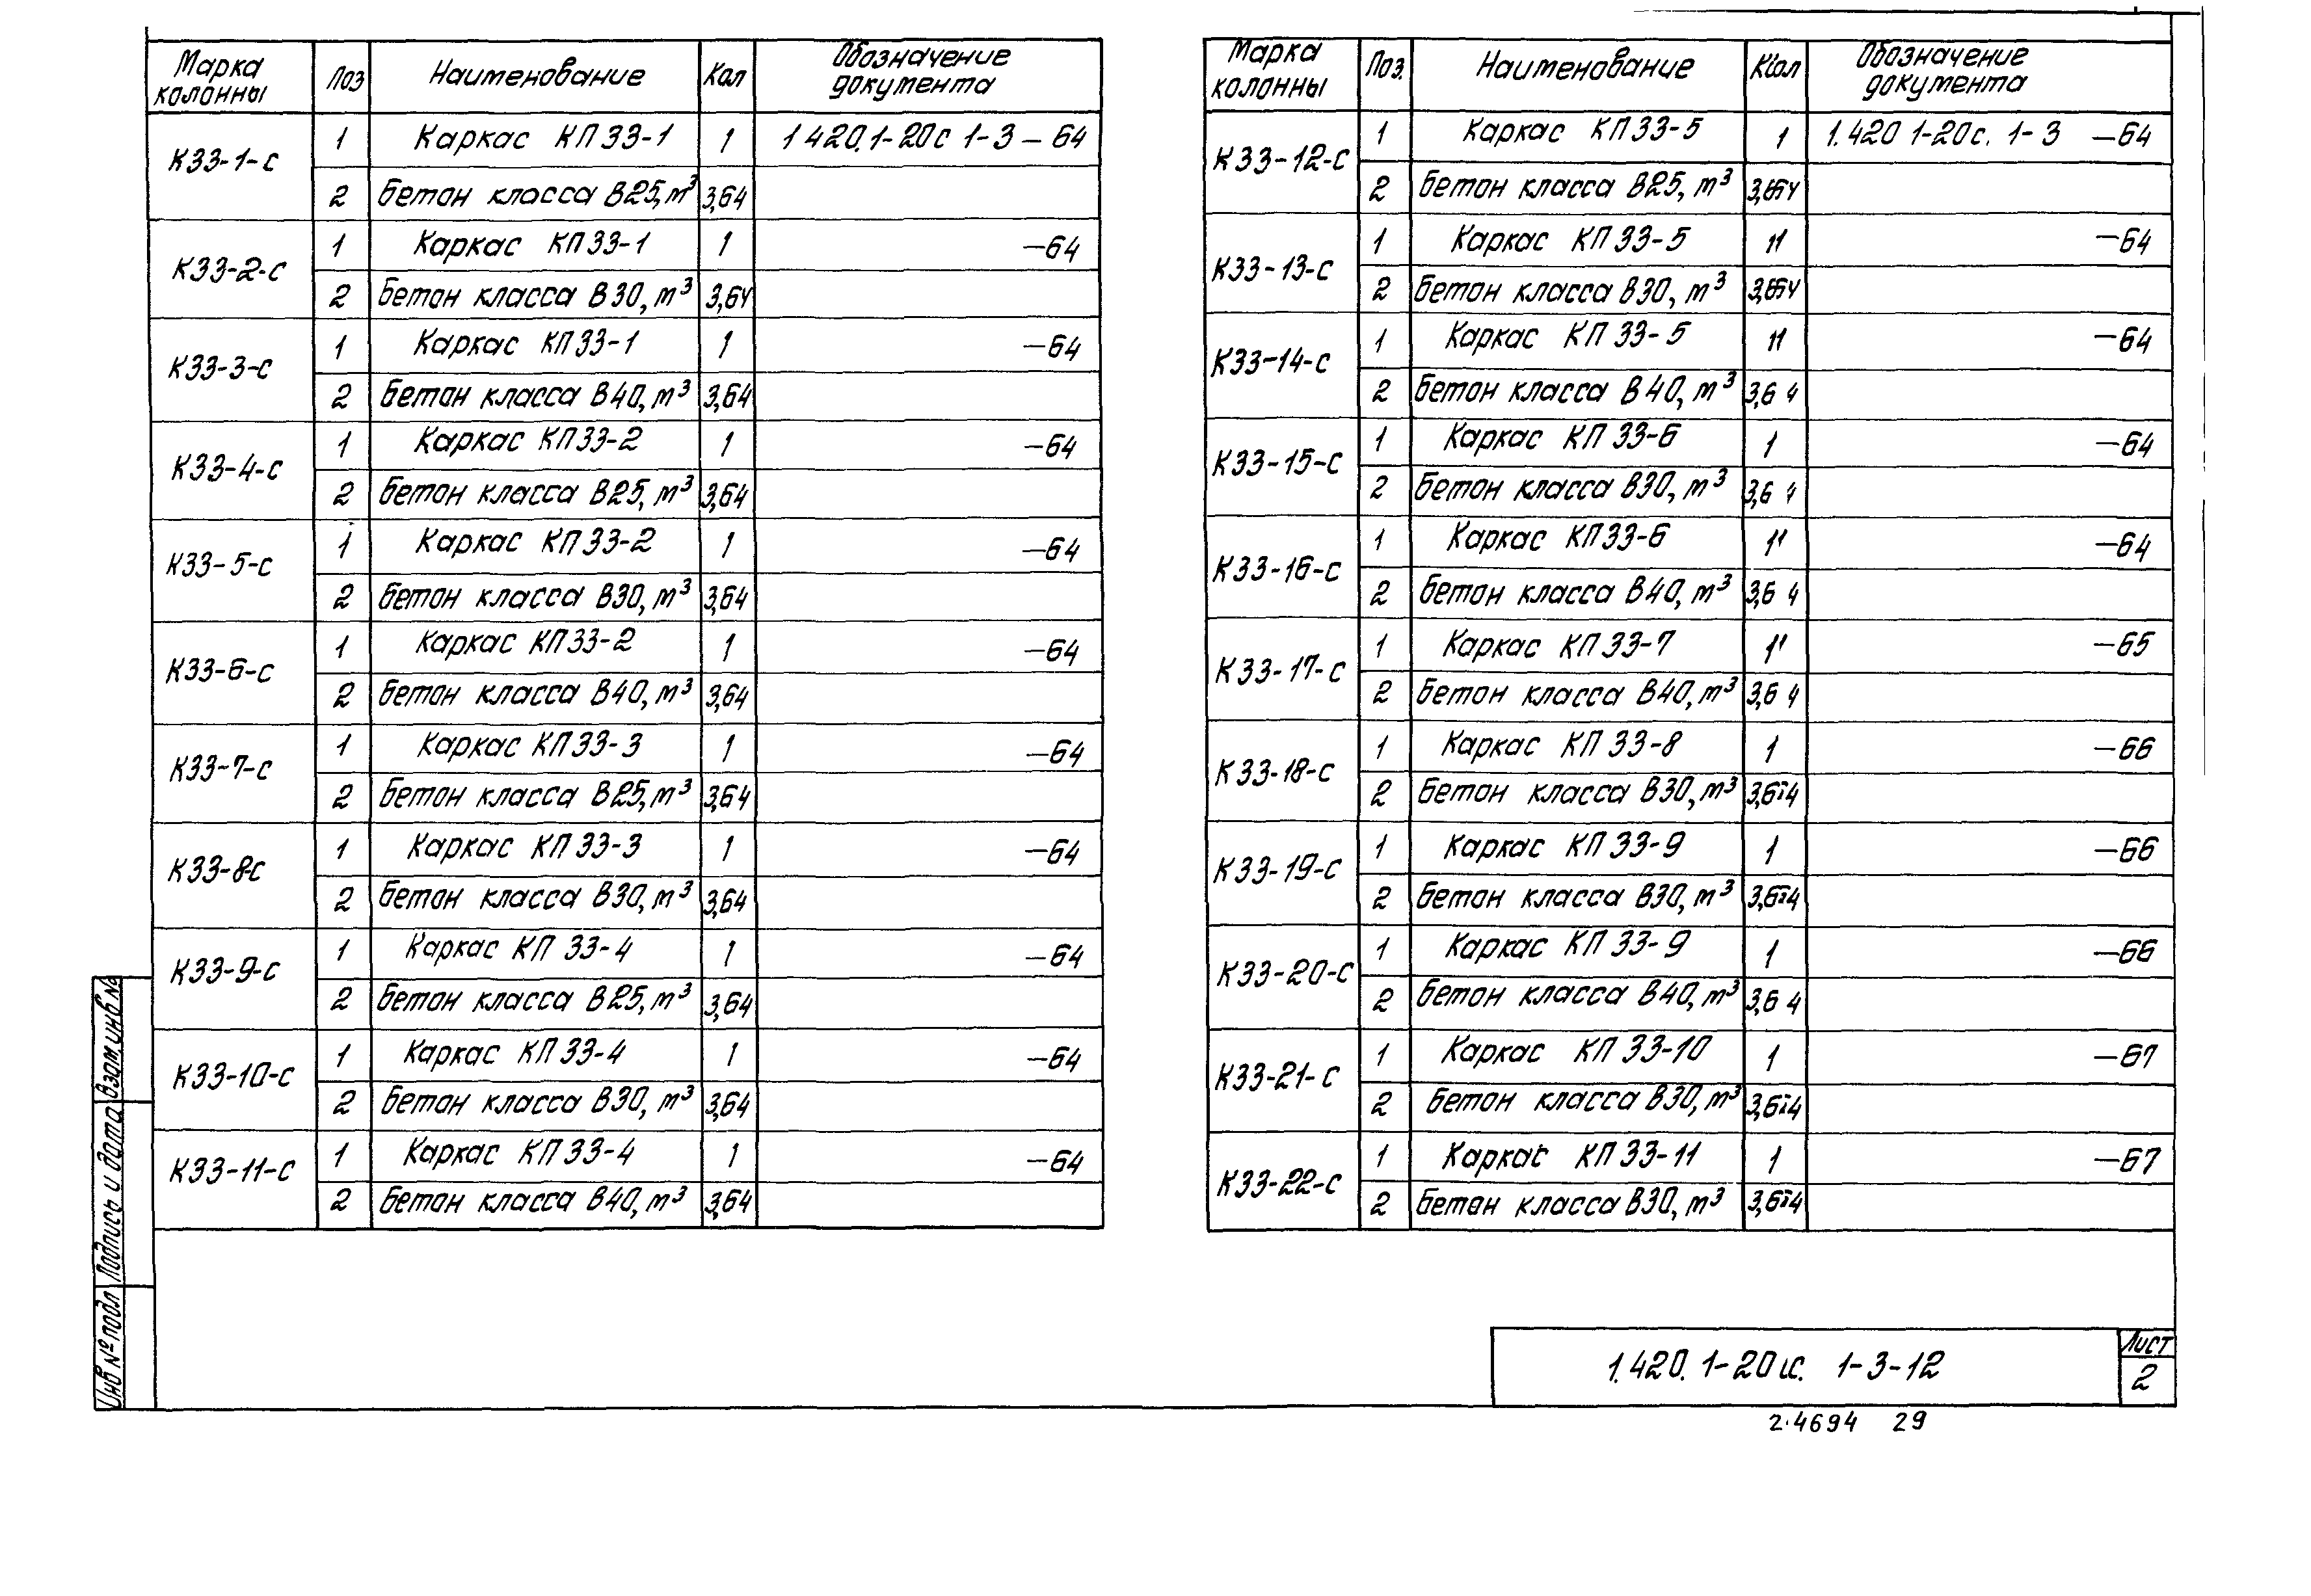 Марка колонны Поз Наименование Кол Обозначение документа
К33-1-с 1 Каркас КП 33-1 1 1 420.1-20с 1-3 – 64
2 бетон класса В25, м³ 3,64
К33-2-с 1 Каркас КП 33-1 1 –64
2 бетон класса В30, м³ 3,64
К33-3-с 1 Каркас КП 33-1 1 –64
2 бетон класса В40, м³ 3,64
К33-4-с 1 Каркас КП 33-2 1 –64
2 бетон класса В25, м³ 3,64
К33-5-с 1 Каркас КП 33-2 1 –64
2 бетон класса В30, м³ 3,64
К33-6-с 1 Каркас КП 33-2 1 –64
2 бетон класса В40, м³ 3,64
К33-7-с 1 Каркас КП 33-3 1 –64
2 бетон класса В25, м³ 3,64
К33-8-с 1 Каркас КП 33-3 1 –64
2 бетон класса В30, м³ 3,64
К33-9-с 1 Каркас КП 33-4 1 –64
2 бетон класса В25, м³ 3,64
К33-10-с 1 Каркас КП 33-4 1 –64
2 бетон класса В30, м³ 3,64
К33-11-с 1 Каркас КП 33-4 1 –64
2 бетон класса В40, м³ 3,64
Марка колонны Поз. Наименование Кол Обозначение документа
К33-12-с 1 Каркас КП 33-5 1 1.420 1-20с. 1-3 –64
2 бетон класса В25, м³ 3,64
К33-13-с 1 Каркас КП 33-5 1 –64
2 бетон класса В30, м³ 3,64
К33-14-с 1 Каркас КП 33-5 1 –64
2 бетон класса В40, м³ 3,64
К33-15-с 1 Каркас КП 33-6 1 –64
2 бетон класса В30, м³ 3,64
К33-16-с 1 Каркас КП 33-6 1 –64
2 бетон класса В40, м³ 3,64
К33-17-с 1 Каркас КП 33-7 1 –65
2 бетон класса В40, м³ 3,64
К33-18-с 1 Каркас КП 33-8 1 –66
2 бетон класса В30, м³ 3,64
К33-19-с 1 Каркас КП 33-9 1 –66
2 бетон класса В30, м³ 3,64
К33-20-с 1 Каркас КП 33-9 1 –66
2 бетон класса В40, м³ 3,64
К33-21-с 1 Каркас КП 33-10 1 –67
2 бетон класса В30, м³ 3,64
К33-22-с 1 Каркас КП 33-11 1 –67
2 бетон класса В30, м³ 3,64
Взам. инв №
Подпись и дата
Инв № подл
1.420.1-20с. 1-3-12
Лист
2
2.4694 29